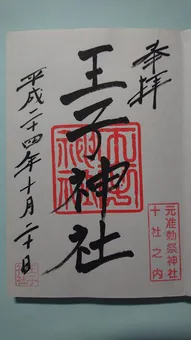 奉拝
王子神社
元准勅祭神社
十社之内
平成二十四年十月二十日